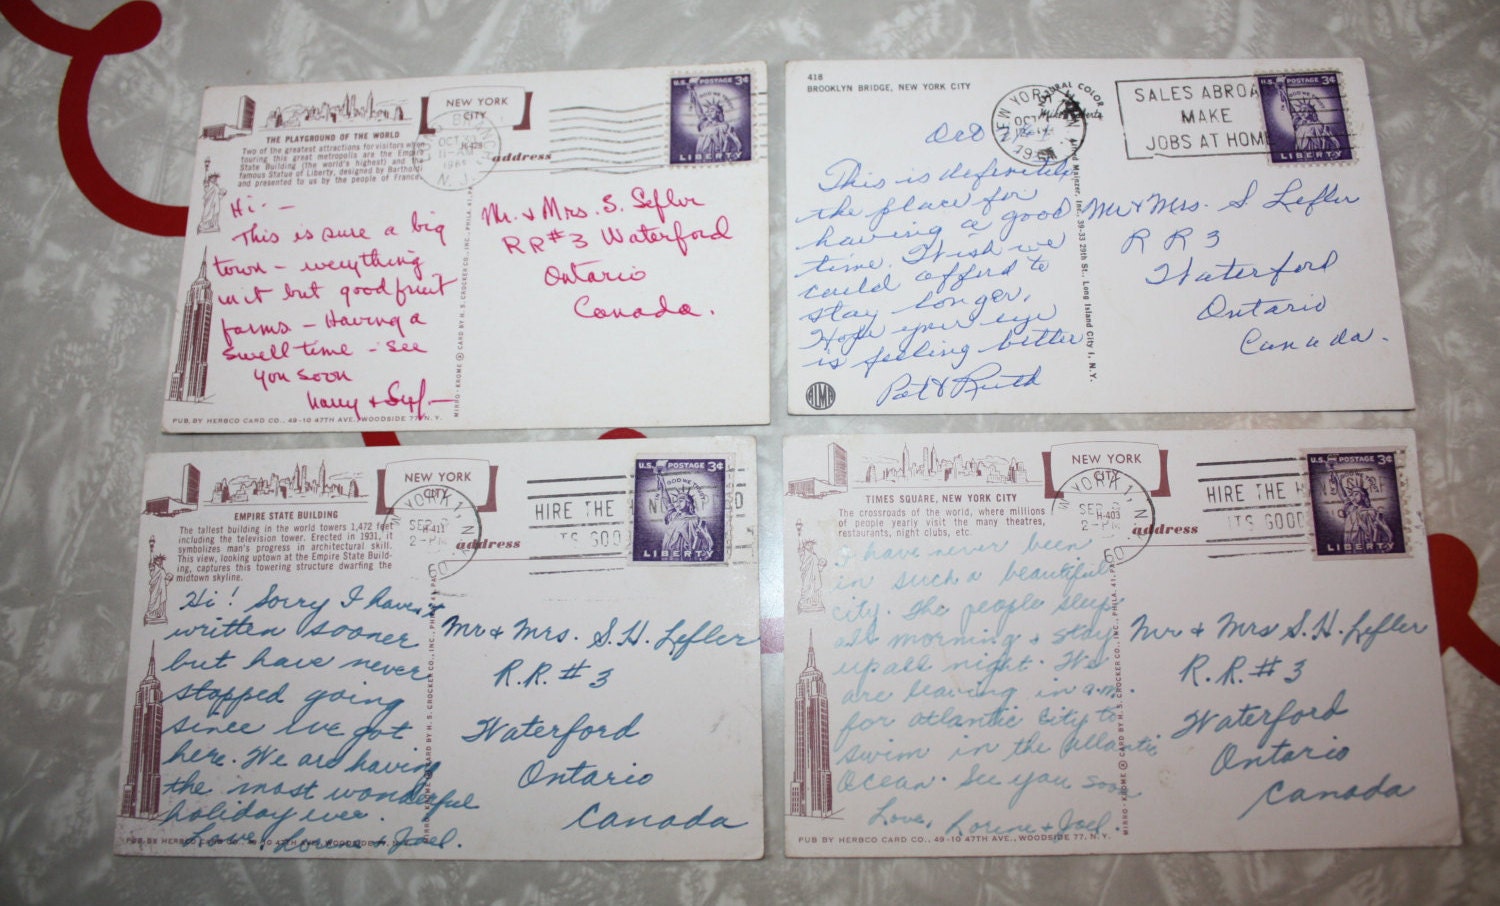 NEW YORK
CITY
THE PLAYGROUND OF THE WORLD
Two of the greatest attractions for visitors when
touring this great metropolis are the Empire
State Building (the world's highest) and the
famous Statue of Liberty, designed by Bartholdi
and presented to us by the people of France.
H-428
address
OCT
11-AM
N. J.
U.S. POSTAGE 3¢
IN GOD WE TRUST
LIBERTY
Hi --
This is sure a big
town - everything
in it but good fruit
farms - Having a
swell time - See
you soon
Harry +
Mr. + Mrs. S. Lefler
RR#3 Waterford
Ontario
Canada.
MIRRO-KROME CARD BY H. S. CROCKER CO., INC., PHILA. 41, PA.
PUB. BY HERBCO CARD CO., 49-10 47TH AVE., WOODSIDE 77, N. Y.
418
BROOKLYN BRIDGE, NEW YORK CITY
NATURAL COLOR
NEW YORK
OCT
SALES ABROAD
MAKE
JOBS AT HOME
U.S. POSTAGE 3¢
LIBERTY
This is definitely
the place for
having a good
time. Wish we
could afford to
stay longer.
Hope your eye
is feeling better
Pat & Ruth
Mr + Mrs. S Lefler
RR 3
Waterford
Ontario
Canada.
39-33 29th St., Long Island City 1, N. Y.
ALMA
NEW YORK
CITY
EMPIRE STATE BUILDING
The tallest building in the world towers 1,472 feet
including the television tower. Erected in 1931, it
symbolizes man's progress in architectural skill.
This view, looking uptown at the Empire State Build-
ing, captures this towering structure dwarfing the
midtown skyline.
H-411
address
W YORK 1, N
SEP
2-PM
60
HIRE THE
IT'S GOOD
U.S. POSTAGE 3¢
IN GOD WE TRUST
LIBERTY
Hi! Sorry I haven't
written sooner
but have never
stopped going
since I've got
here. We are having
the most wonderful
holiday ever.
Love, Lorene + Joel.
Mr + Mrs. S. H. Lefler
R.R. # 3
Waterford
Ontario
Canada
MIRRO-KROME CARD BY H. S. CROCKER CO., INC., PHILA. 41, PA.
PUB BY HERBCO CARD CO., 49-10 47TH AVE., WOODSIDE 77, N.Y.
NEW YORK
CITY
TIMES SQUARE, NEW YORK CITY
The crossroads of the world, where millions
of people yearly visit the many theatres,
restaurants, night clubs, etc.
H-403
address
W YORK 1, N
SEP
2-PM
60
HIRE THE H
ITS GOOD
U.S. POSTAGE 3¢
LIBERTY
I have never been
in such a beautiful
city. The people sleep
all morning + stay
up all night. We
are leaving in a.m.
for Atlantic City to
swim in the Atlantic
Ocean. See you soon
Love, Lorene + Joel.
Mr + Mrs S. H. Lefler
R.R. # 3
Waterford
Ontario
Canada
MIRRO-KROME CARD BY H. S. CROCKER CO., INC., PHILA. 41, PA.
PUB BY HERBCO CARD CO., 49-10 47TH AVE., WOODSIDE 77, N. Y.